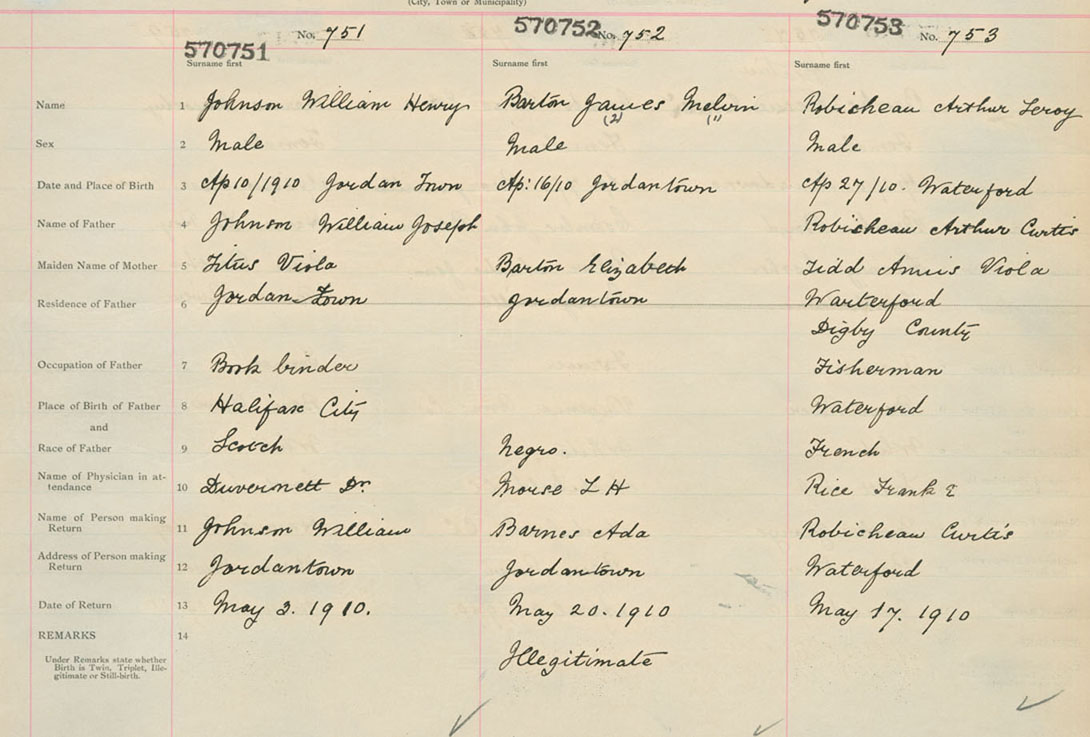 (City, Town or Municipality)
570751 No. 751 570752 No. 752 570753 No. 753
Surname first Surname first Surname first
Name 1 Johnson William Henry Barton James Melvin Robicheau Arthur Leroy
(2) (1)
Sex 2 Male Male Male
Date and Place of Birth 3 Ap 10/1910 Jordan Town Ap: 16/10 Jordantown Ap 27/10. Waterford
Name of Father 4 Johnson William Joseph Robicheau Arthur Curtis
Maiden Name of Mother 5 Titus Viola Barton Elizabeth Tidd Viola
Residence of Father 6 Jordan Town Jordantown Warterford
Digby County
Occupation of Father 7 Book binder Fisherman
Place of Birth of Father 8 Halifax City Waterford
and
Race of Father 9 Scotch Negro. French
Name of Physician in at-
tendance 10 Duvernett Dr. Morse L H Rice Frank E
Name of Person making
Return 11 Johnson William Barnes Ada Robicheau Curtis
Address of Person making
Return 12 Jordantown Jordantown Waterford
Date of Return 13 May 3. 1910. May 20. 1910 May 17. 1910
REMARKS 14
Under Remarks state whether
Birth is Twin, Triplet, Ille-
gitimate or Still-birth.
Illegitimate